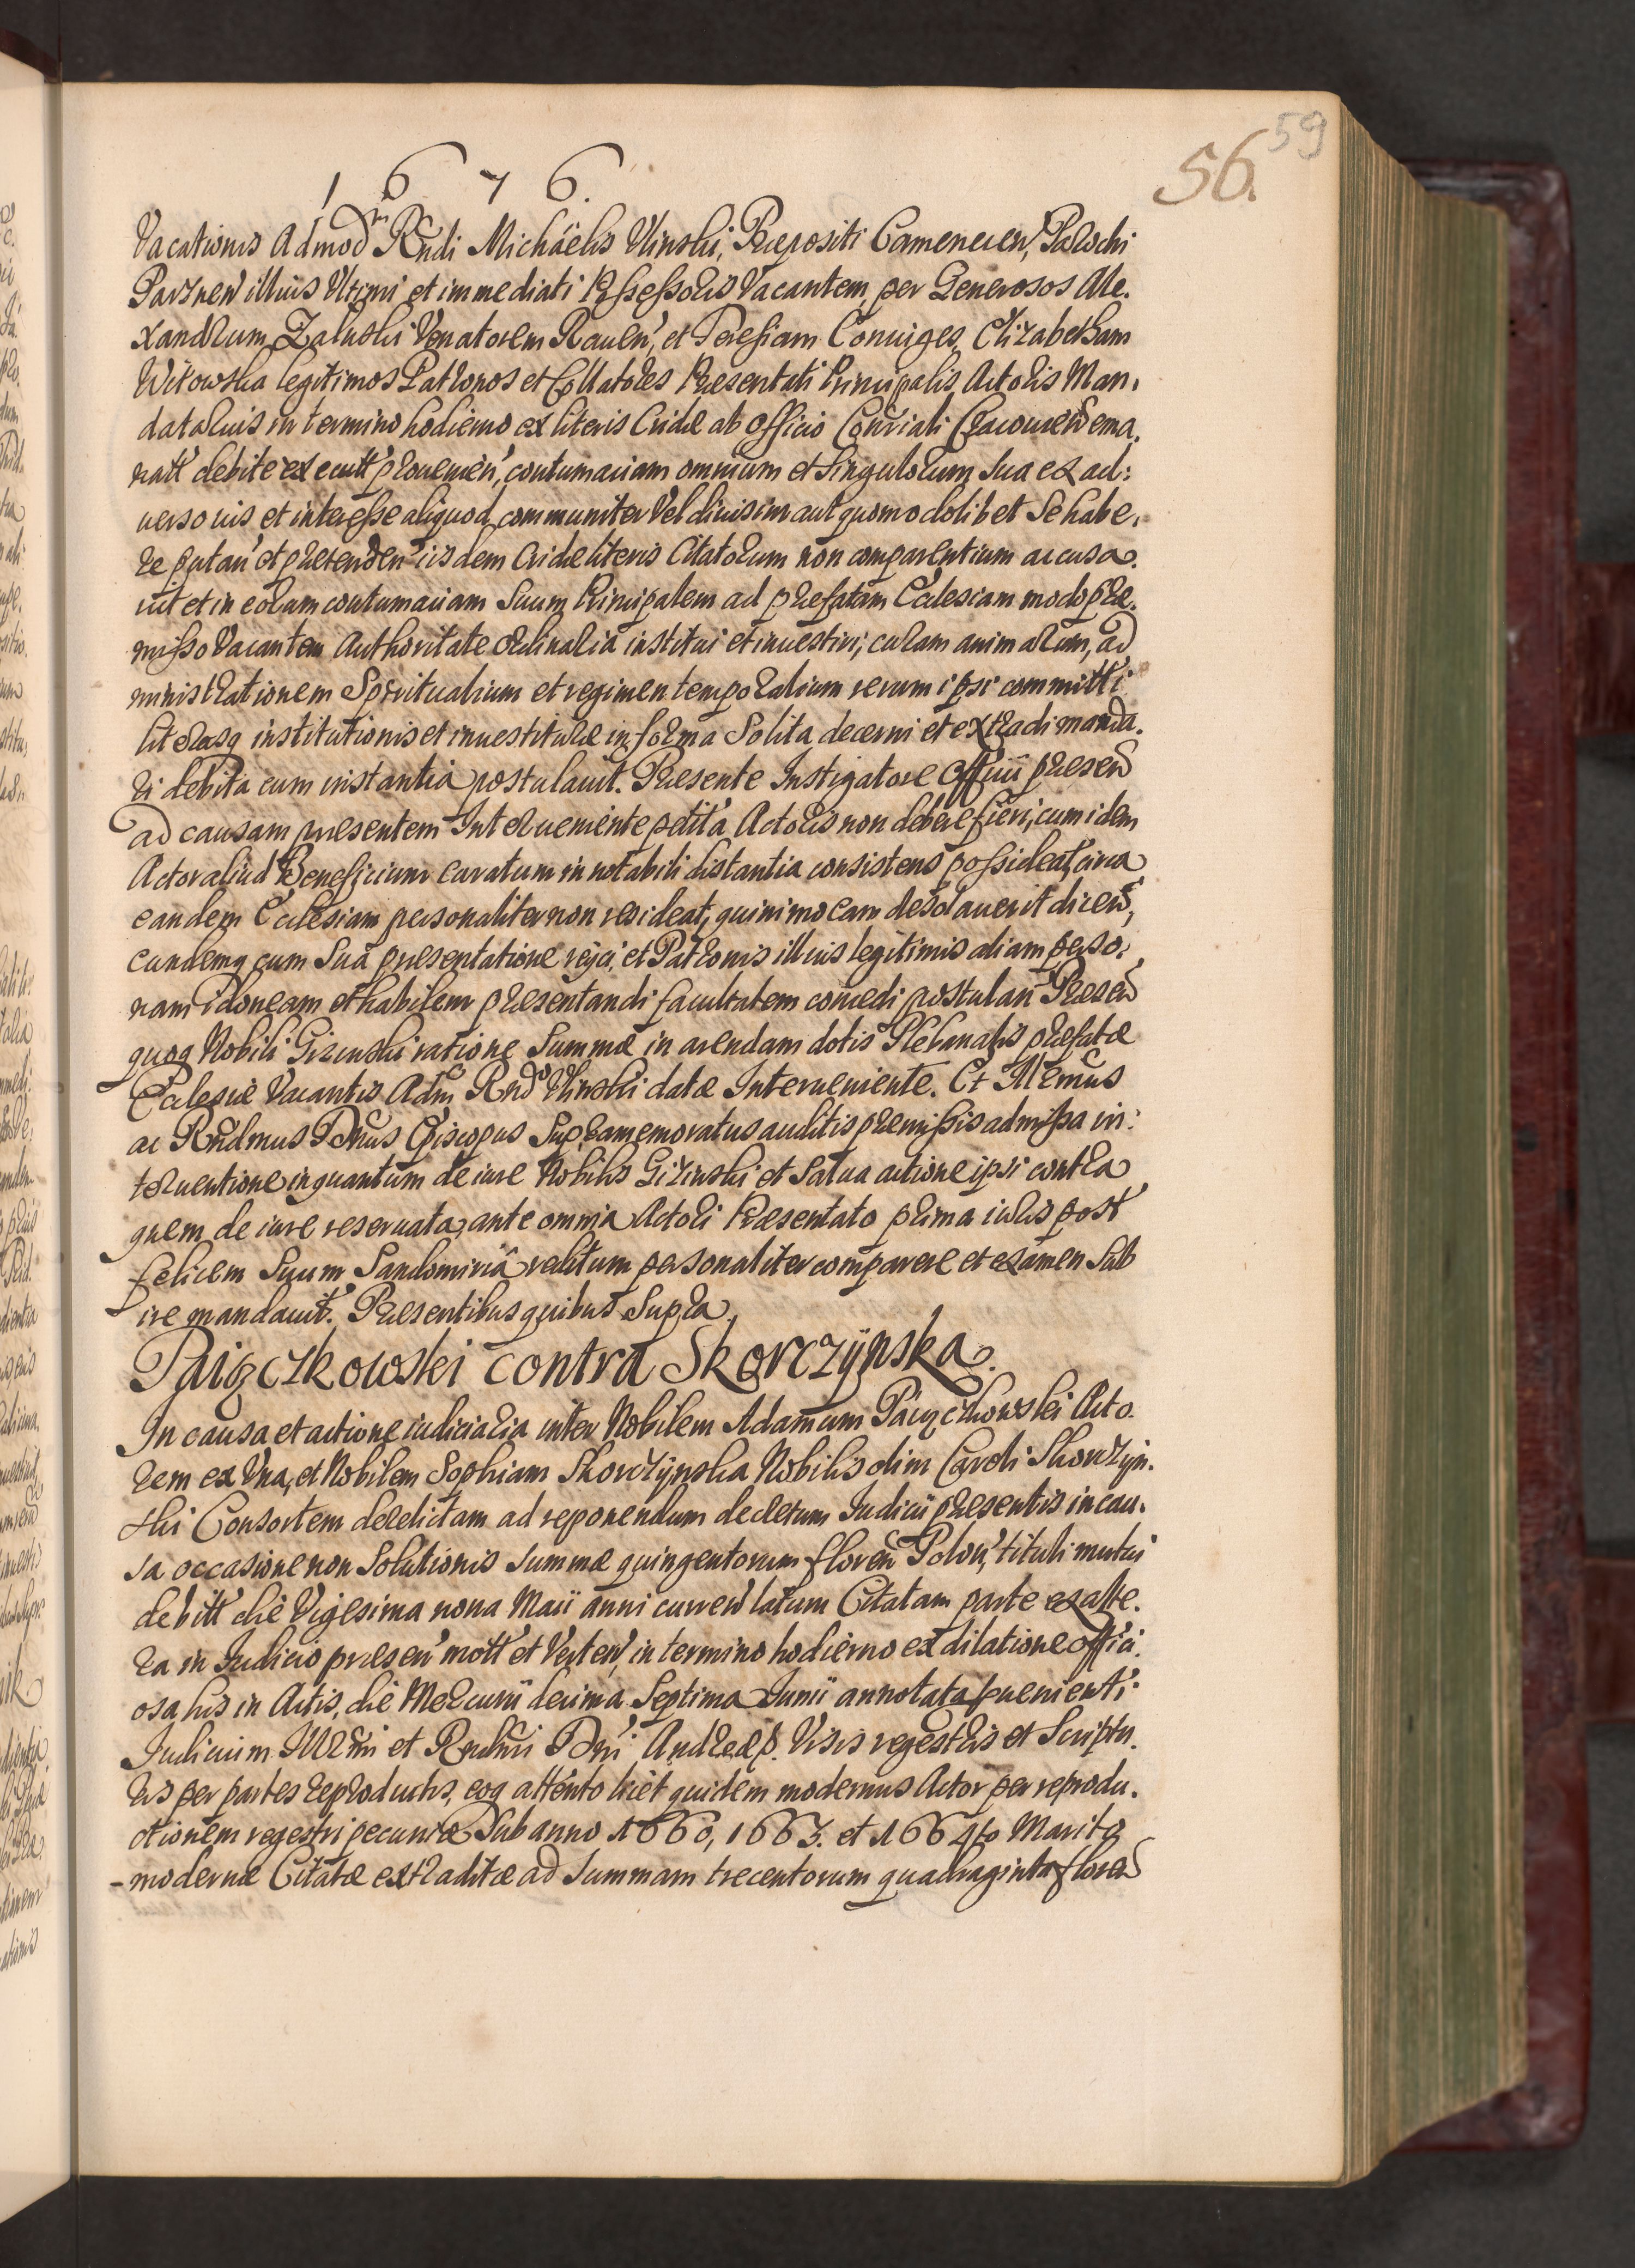 59
56.
1 6 7 6.
Vacationis Admod Rndi Michäelis Vlinski, Præpositi Camenecen, Parochi
illius Vltimi et immediati Possessoris Vacantem, per Generosos Ale.
xandrum Zaluski Venatorem Rauen, et Teresiam Coniuges, Elizabetham
Witowska legitimos Patronos et Collatores Præsentati Principalis Actoris Man.
datarius in termino hodierno ex literis Cridæ ab officio Consciali Cracouien ema.
natt debite executt prouenien, contumaciam omnium et singulorum sua ex ad:
uerso ius et interesse aliquod, communiter Vel diuisim aut quomodolibet se habe.
re putan et prætenden iisdem Cridæ literis Citatorum non comparentium accusa.
uit et in eorum contumaciam suum Principalem ad præfatam Ecclesiam modo præ.
misso Vacantem Authoritate ordinaria institui et inuestiri, curam animarum, ad
ministrationem Spiritualium et regimen temporalium rerum ipsi committi
literasq institutionis et inuestituræ in forma Solita decerni et extradi manda.
ri debita cum instantia postulauit. Præsente Instigatore Officii præsen
ad causam præsentem Interueniente petita Actoris non debere fieri, cum idem
Actor aliud Beneficium curatum in notabili distantia consistens possideat, circa
eandem Ecclesiam personaliter non resideat, quinimo eam desolauerit dicen,
eundemq cum Sua præsentatione reijci, et Patronis illius legitimis aliam perso.
nam idoneam et habilem præsentandi facultatem concedi postulan Præsen
quoq Nobili Gizinski ratione Summæ in arendam dotis Plebanalis præfatæ
Ecclesiæ Vacantis Adm Rndo Vlinski datæ Interueniente. Et Illrmus
ac Rndmus Dnus Episcopus Supramemoratus auditis præmissis admissa in:
teruentione inquantum de iure Nobilis Gizinski et salua actione ipsi contra
quem de iure reseruata, ante omnia Actori Præsentato prima iuris post
felicem Suum Sandomiria reditum personaliter comparere et examen Sub
ire mandauit. Præsentibus quibus Supra.
Paięczkowski contra Skorczÿnska.
In causa et actione iudiciaria inter Nobilem Adamum Paięczkowski Acto.
rem ex Vna, et Nobilem Sophiam Skorczÿnska Nobilis olim Caroli Skorczÿn.
ski Consortem derelictam ad reponendum decretum Iudicii præsentis in cau.
sa occasione non Solutionis summæ quingentorum floren Polon, tituli mutui
debitt die Vigesima nona Maii anni curren latum Citatam parte ex alte.
ra in Iudicio præsen mott et Verten, in termino hodierno ex dilatione offici.
osa his in Actis, die Mercurii decima Septima Iunii annotata puenienti
Iudicium Illrmi et Rndmi Dni Andreæ p. Visis regestris et Scriptu.
ris per partes reproductis, eoq attento licet quidem modernus Actor per reprodu.
ctionem regestri pecuniæ Sub anno 1660, 1663. et 1664to Marito
modernæ Citatæ extraditæ ad summam trecentorum quadraginta floren